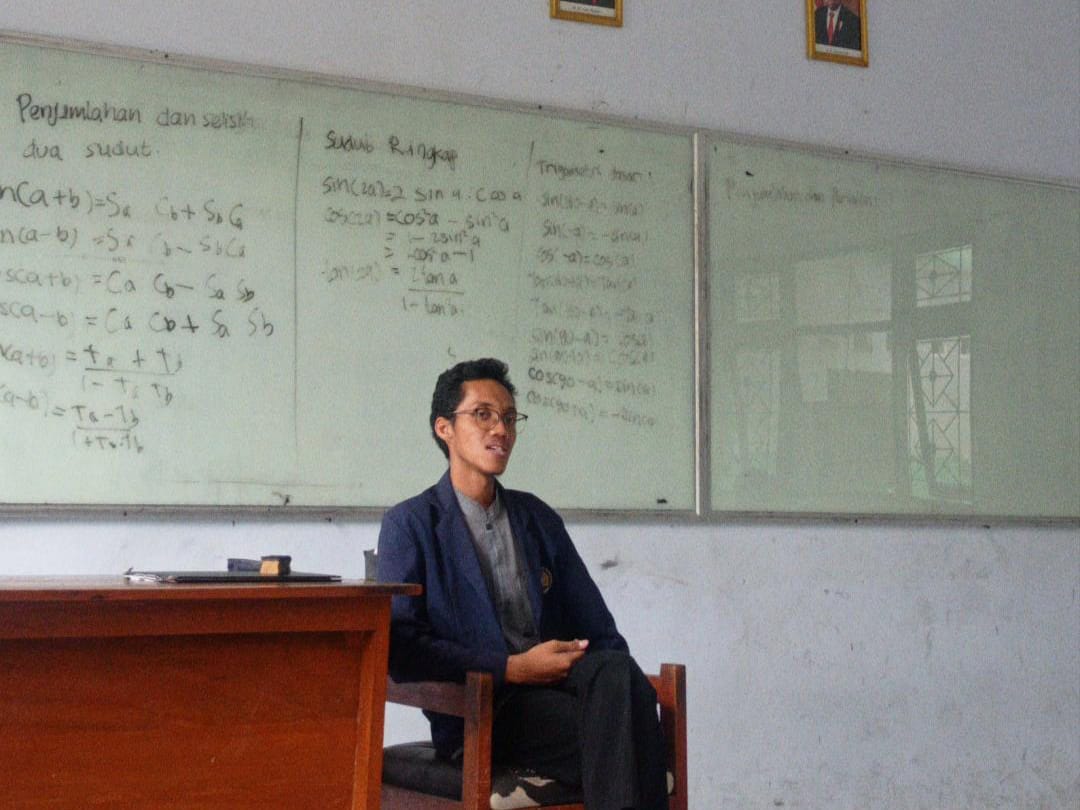 Penjumlahan dan selisih
dua sudut.
n(a+b)=Sa Cb + Sb Ca
n(a-b) =Sa Cb - Sb Ca
os(a+b) = Ca Cb - Sa Sb
os(a-b) = Ca Cb + Sa Sb
(a+b) = Ta + Tb
1 - Ta Tb
(a-b) = Ta - Tb
1 + Ta.Tb
Sudut Ringkap
sin(2a)=2 sin a . Cos a
cos(2a) =cos²a - sin²a
= 1 - 2sin²a
= 2cos²a - 1
tan(2a) = 2 tan a
1 - tan²a
Trigonometri dasar :
sin(-a) = -sin(a)
cos(-a) = cos(a)
sin(90-a) = cos(a)
cos(90-a) = sin(a)
cos(90+a) = -sin(a)